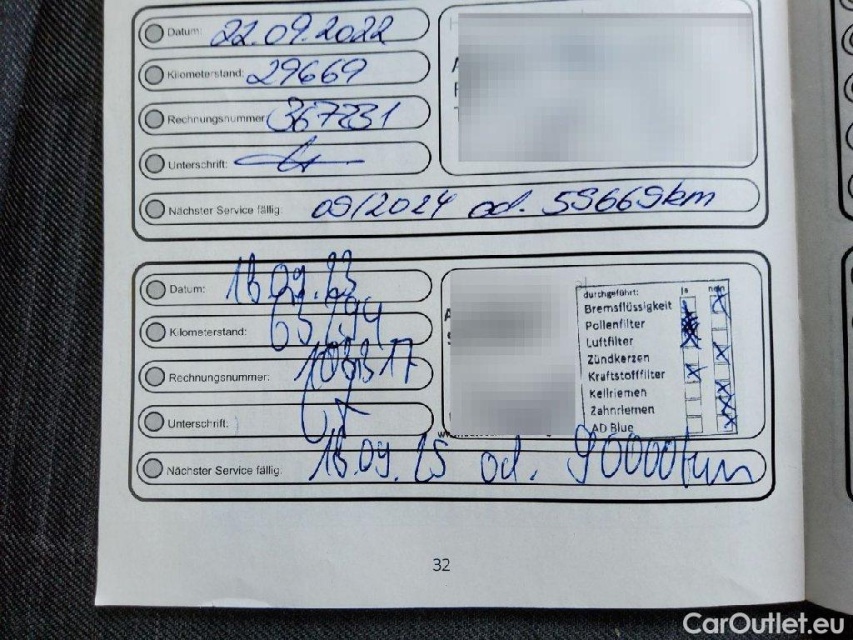 Datum: 22.09.2022
Kilometerstand: 29669
Rechnungsnummer: 367231
Unterschrift:
Nächster Service fällig: 09/2024 od. 59669km
Datum: 18.09.23
Kilometerstand: 63794
Rechnungsnummer:
Unterschrift:
Nächster Service fällig: 18.09.25 od. 90000km
durchgeführt: ja nein
Bremsflüssigkeit
Pollenfilter
Luftfilter
Zündkerzen
Kraftstofffilter
Keilriemen
Zahnriemen
AD Blue
32
CarOutlet.eu